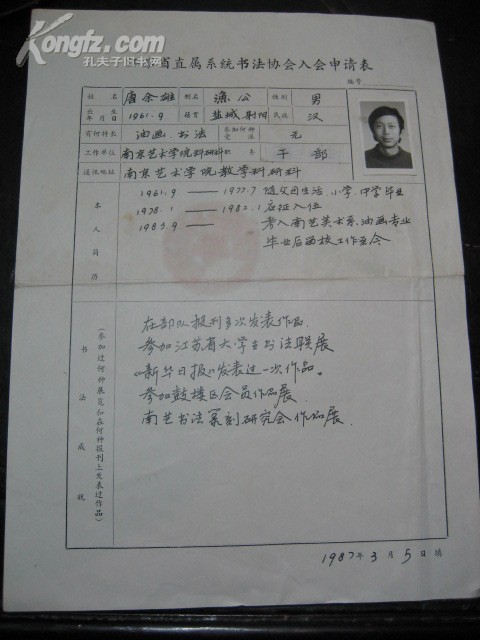 Kongfz.com
孔夫子旧书网
省直属系统书法协会入会申请表
编号
姓名 唐余雄 别名 濂公 性别 男
出生年月日 1961.9 籍贯 盐城 射阳 民族 汉
有何特长 油画、书法 参加何种党派 无
工作单位 南京艺术学院教学科研科 职务 干部
通讯地址 南京艺术学院教学科研科
本人简历
1961.9 —— 1977.7 随父母生活、小学、中学毕业
1978.1 —— 1982.1 应征入伍
1983.9 —— 考入南艺美术系油画专业
毕业后留校工作至今
书法成就
(参加过何种展览和在何种报刊上发表过作品)
在部队报刊多次发表作品
参加江苏省大学生书法联展
《新华日报》发表过一次作品。
参加鼓楼区会员作品展
南艺书法篆刻研究会作品展
1987年3月5日填